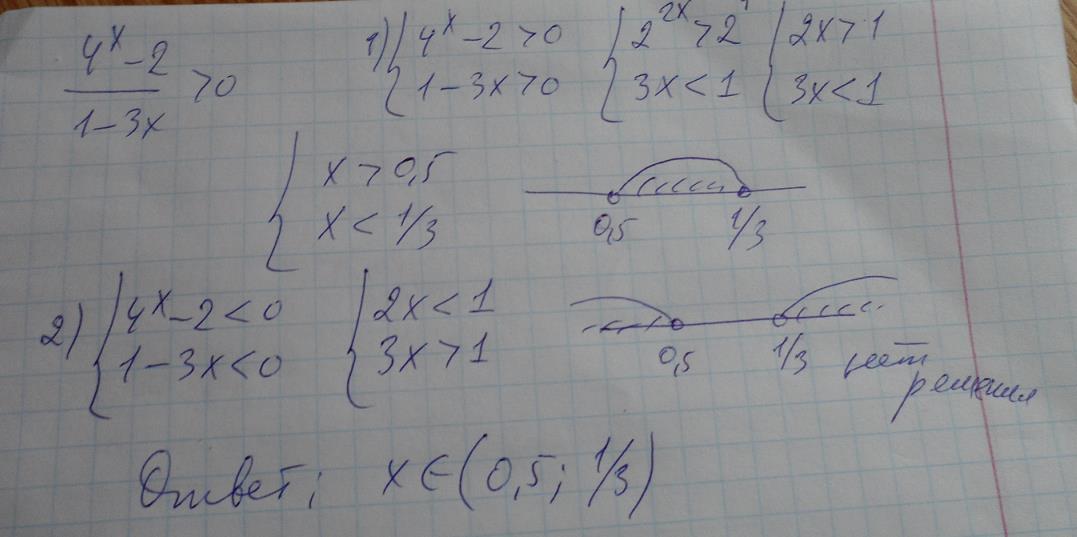 (4^x - 2)/(1 - 3x) > 0 1) { 4^x - 2 > 0 { 2^2x > 2^1 { 2x > 1
1 - 3x > 0 3x < 1 3x < 1
{ x > 0,5
x < 1/3
0,5 1/3
2) { 4^x - 2 < 0 { 2x < 1
1 - 3x < 0 3x > 1
0,5 1/3 нет
решения
Ответ; x ∈ (0,5; 1/3)